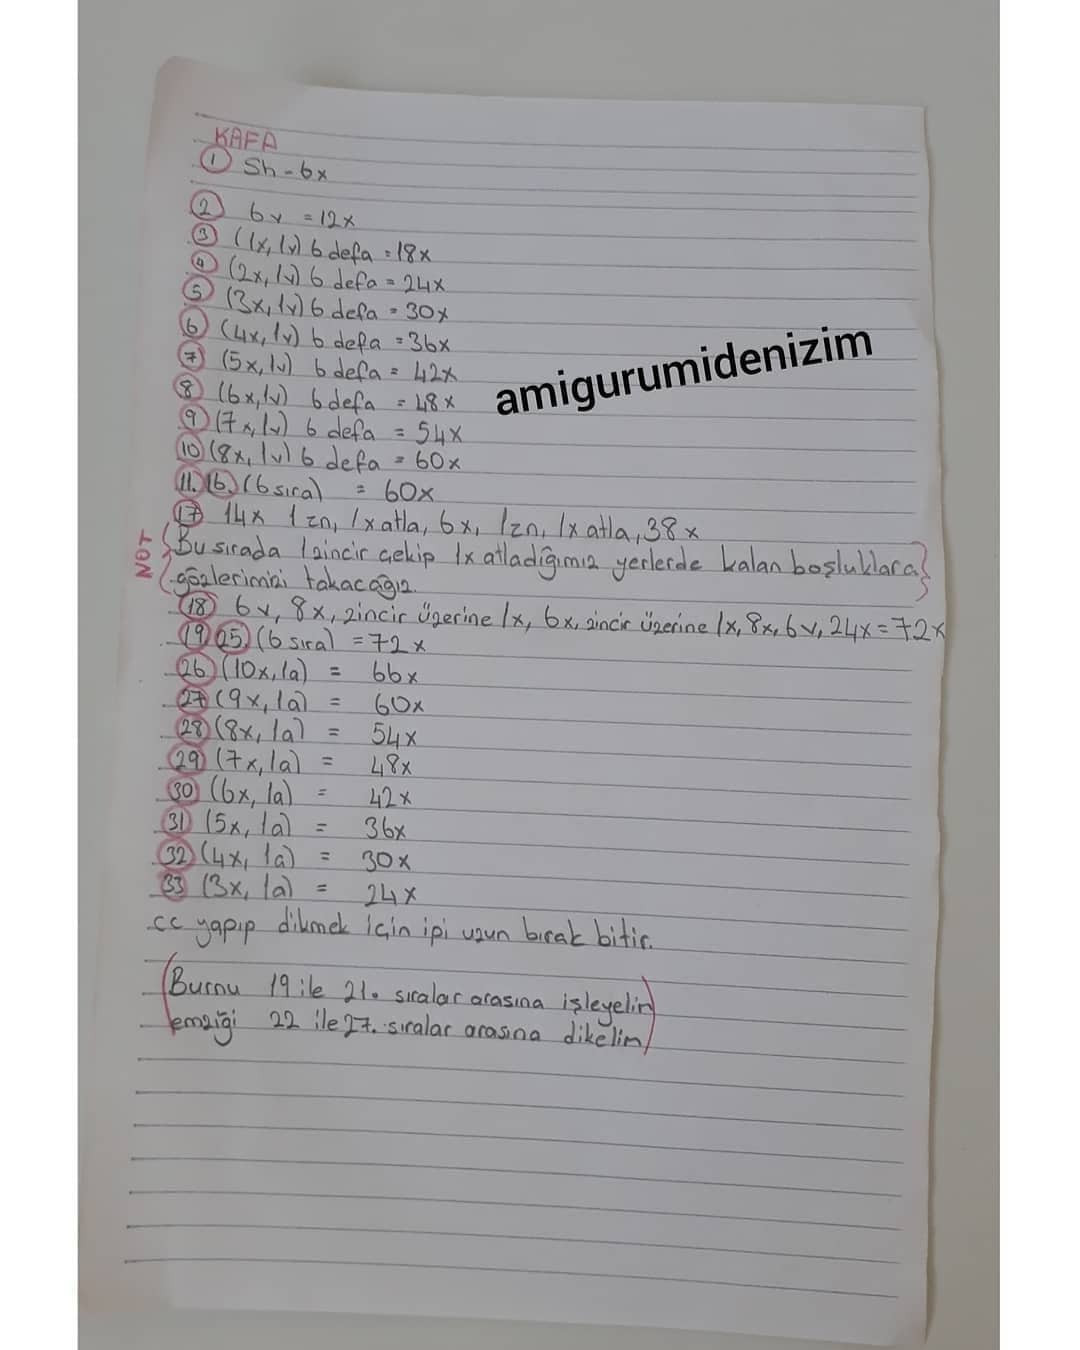 KAFA
1 Sh-6x
2 6v =12x
3 (1x, 1v) 6 defa =18x
4 (2x, 1v) 6 defa = 24x
5 (3x, 1v) 6 defa = 30x
6 (4x, 1v) 6 defa =36x
7 (5x, 1v) 6 defa = 42x
8 (6x, 1v) 6 defa = 48x
9 (7x, 1v) 6 defa = 54x
10 (8x, 1v) 6 defa = 60x
11. 16. (6 sıra) = 60x
17 14x 1 zn, 1x atla, 6x, 1zn, 1x atla, 38x
NOT
Bu sırada 1 zincir çekip 1x atladığımız yerlerde kalan boşluklara
gözlerimizi takacağız.
18 6v, 8x, zincir üzerine 1x, 6x, zincir üzerine 1x, 8x, 6v, 24x=72x
19 25. (6 sıra) =72x
26 (10x, 1a) = 66x
27 (9x, 1a) = 60x
28 (8x, 1a) = 54x
29 (7x, 1a) = 48x
30 (6x, 1a) = 42x
31 (5x, 1a) = 36x
32 (4x, 1a) = 30x
33 (3x, 1a) = 24x
cc yapıp dikmek için ipi uzun bırak bitir.
(Burnu 19 ile 21. sıralar arasına işleyelim)
(emziği 22 ile 27. sıralar arasına dikelim)
amigurumidenizim